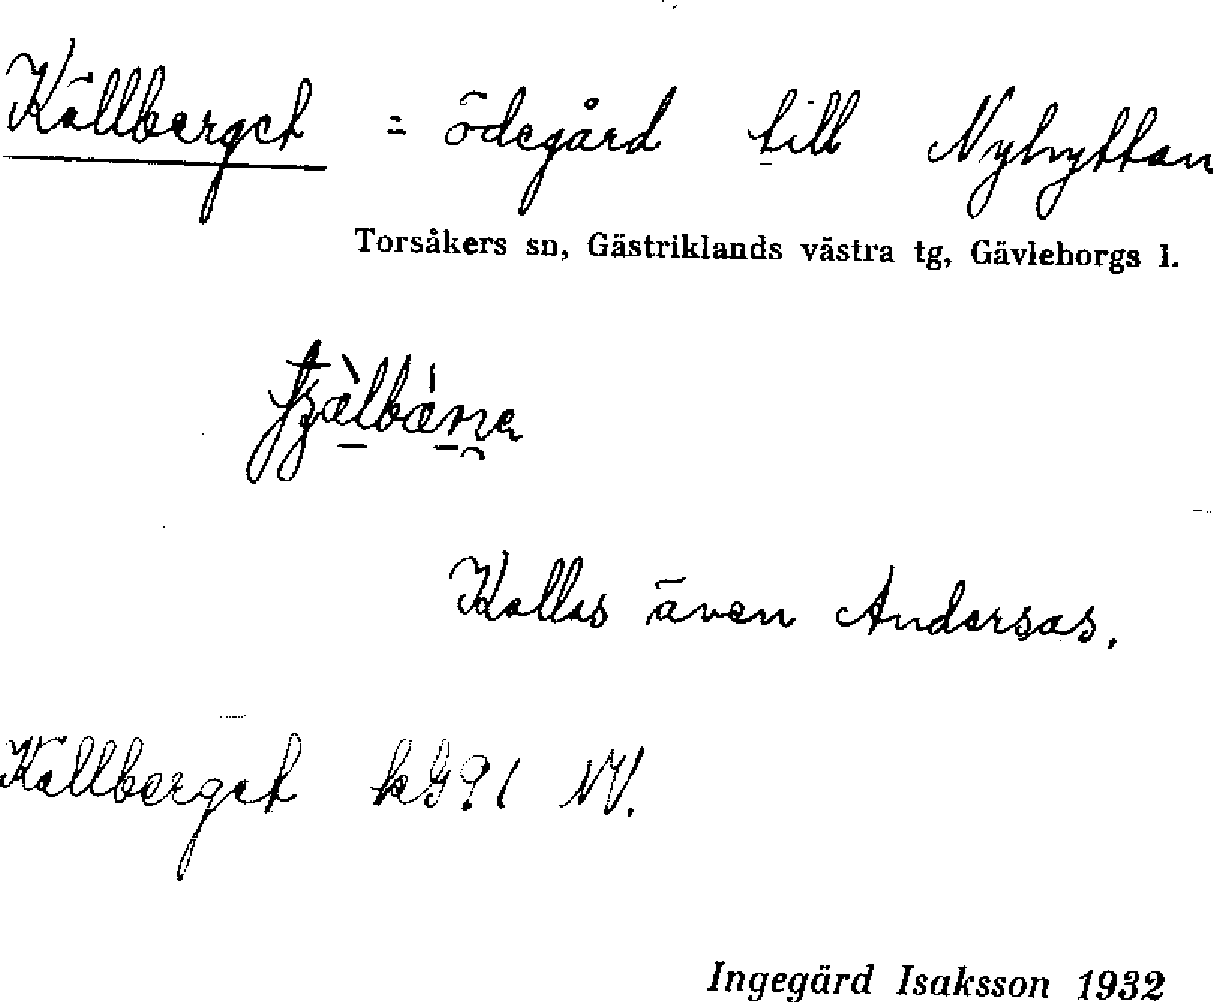 Källberget = ödegård till Nyhyttan
Torsåkers sn, Gästriklands västra tg, Gävleborgs l.
Kallas även Andersas.
Källberget kG91 NV.
Ingegärd Isaksson 1932